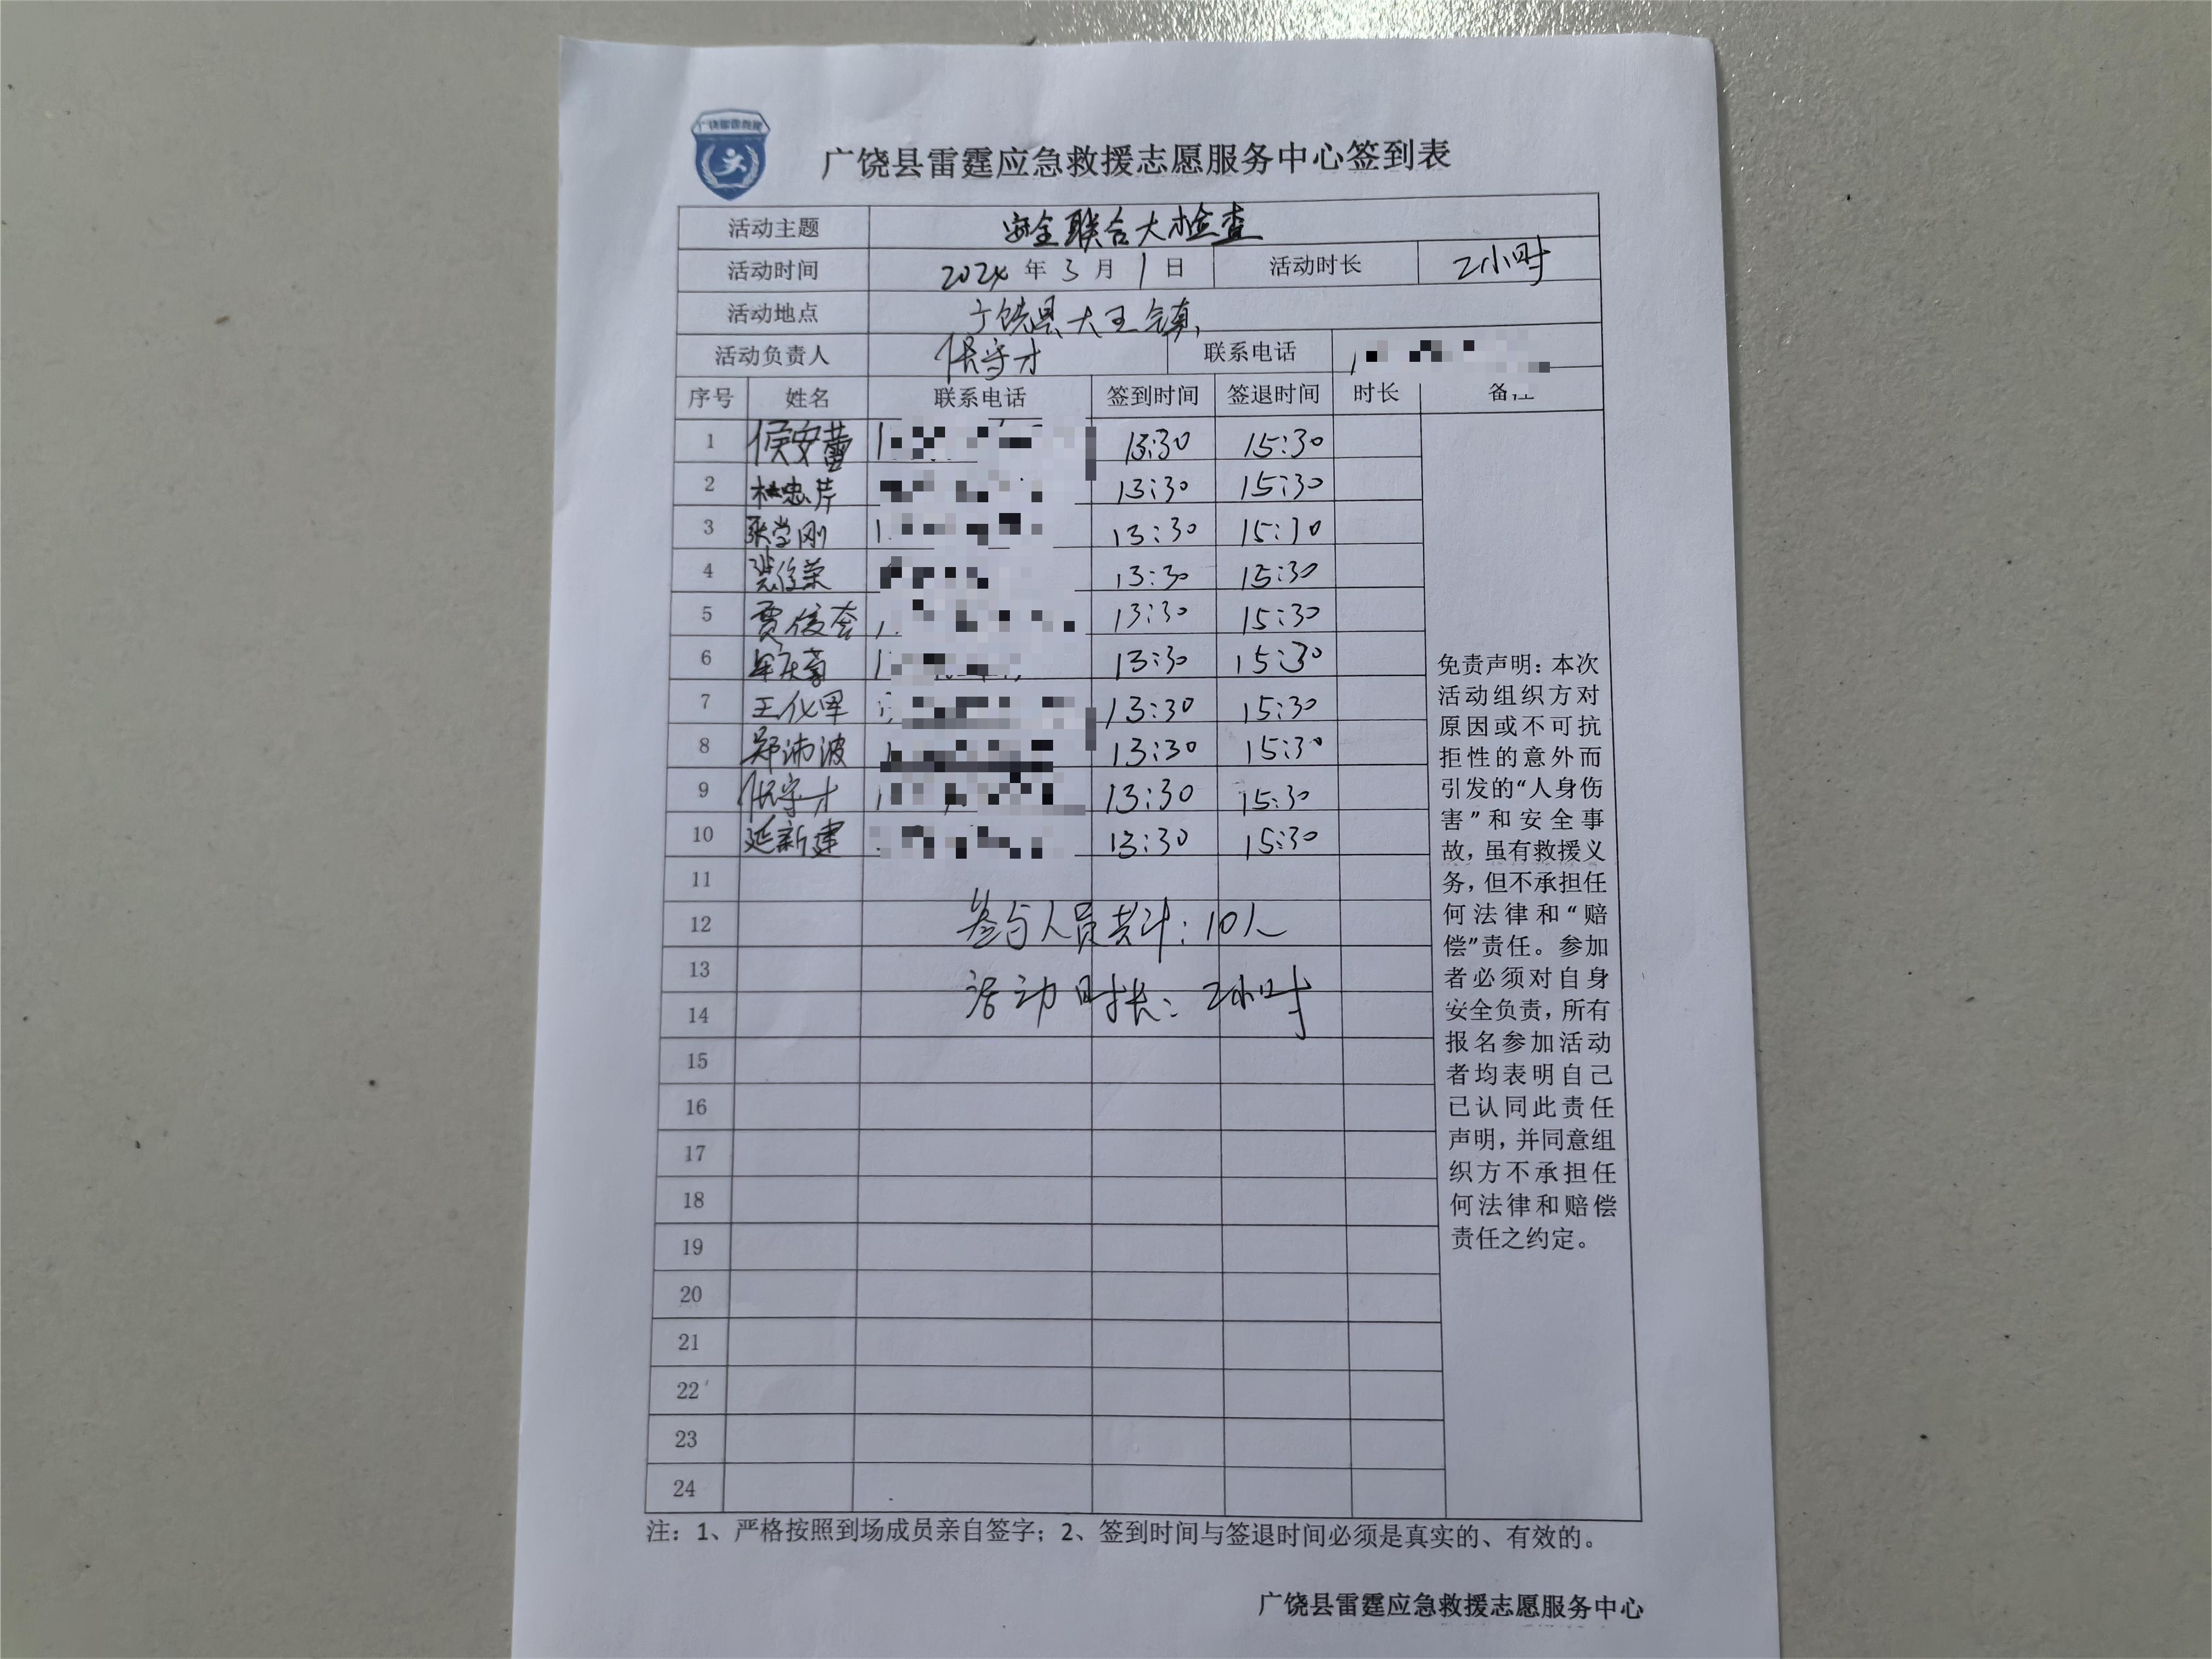 广饶县雷霆应急救援志愿服务中心签到表
活动主题 安全联合大检查
活动时间 2024年3月1日 活动时长 2小时
活动地点 广饶县大王镇
活动负责人 侯守才 联系电话
序号 姓名 联系电话 签到时间 签退时间 时长 备注
1 侯安蕾 13:30 15:30
2 忠芹 13:30 15:30
3 张学刚 13:30 15:30
4 俊荣 13:30 15:30
5 贾俊奎 13:30 15:30
6 13:30 15:30
7 王化军 13:30 15:30
8 郑沛波 13:30 15:30
9 侯守才 13:30 15:30
10 延新建 13:30 15:30
11
12 参与人员共计：10人
13
14 活动时长：2小时
15
16
17
18
19
20
21
22
23
24
免责声明：本次
活动组织方对
原因或不可抗
拒性的意外而
引发的“人身伤
害”和安全事
故，虽有救援义
务，但不承担任
何法律和“赔
偿”责任。参加
者必须对自身
安全负责，所有
报名参加活动
者均表明自己
已认同此责任
声明，并同意组
织方不承担任
何法律和赔偿
责任之约定。
注：1、严格按照到场成员亲自签字；2、签到时间与签退时间必须是真实的、有效的。
广饶县雷霆应急救援志愿服务中心